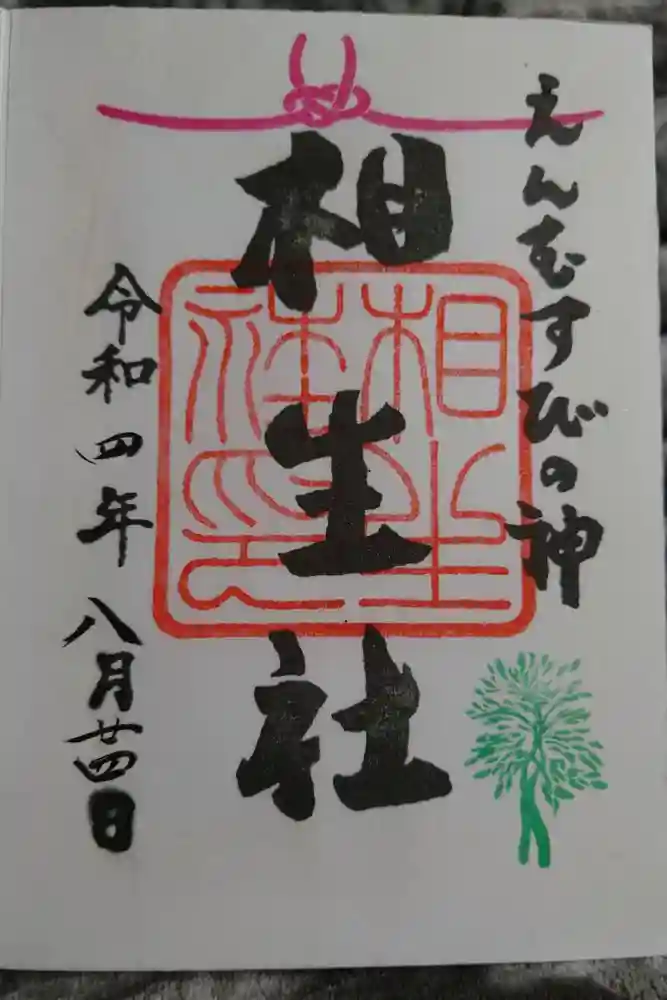 えんむすびの神
相生社
相生社印
令和四年八月廿四日